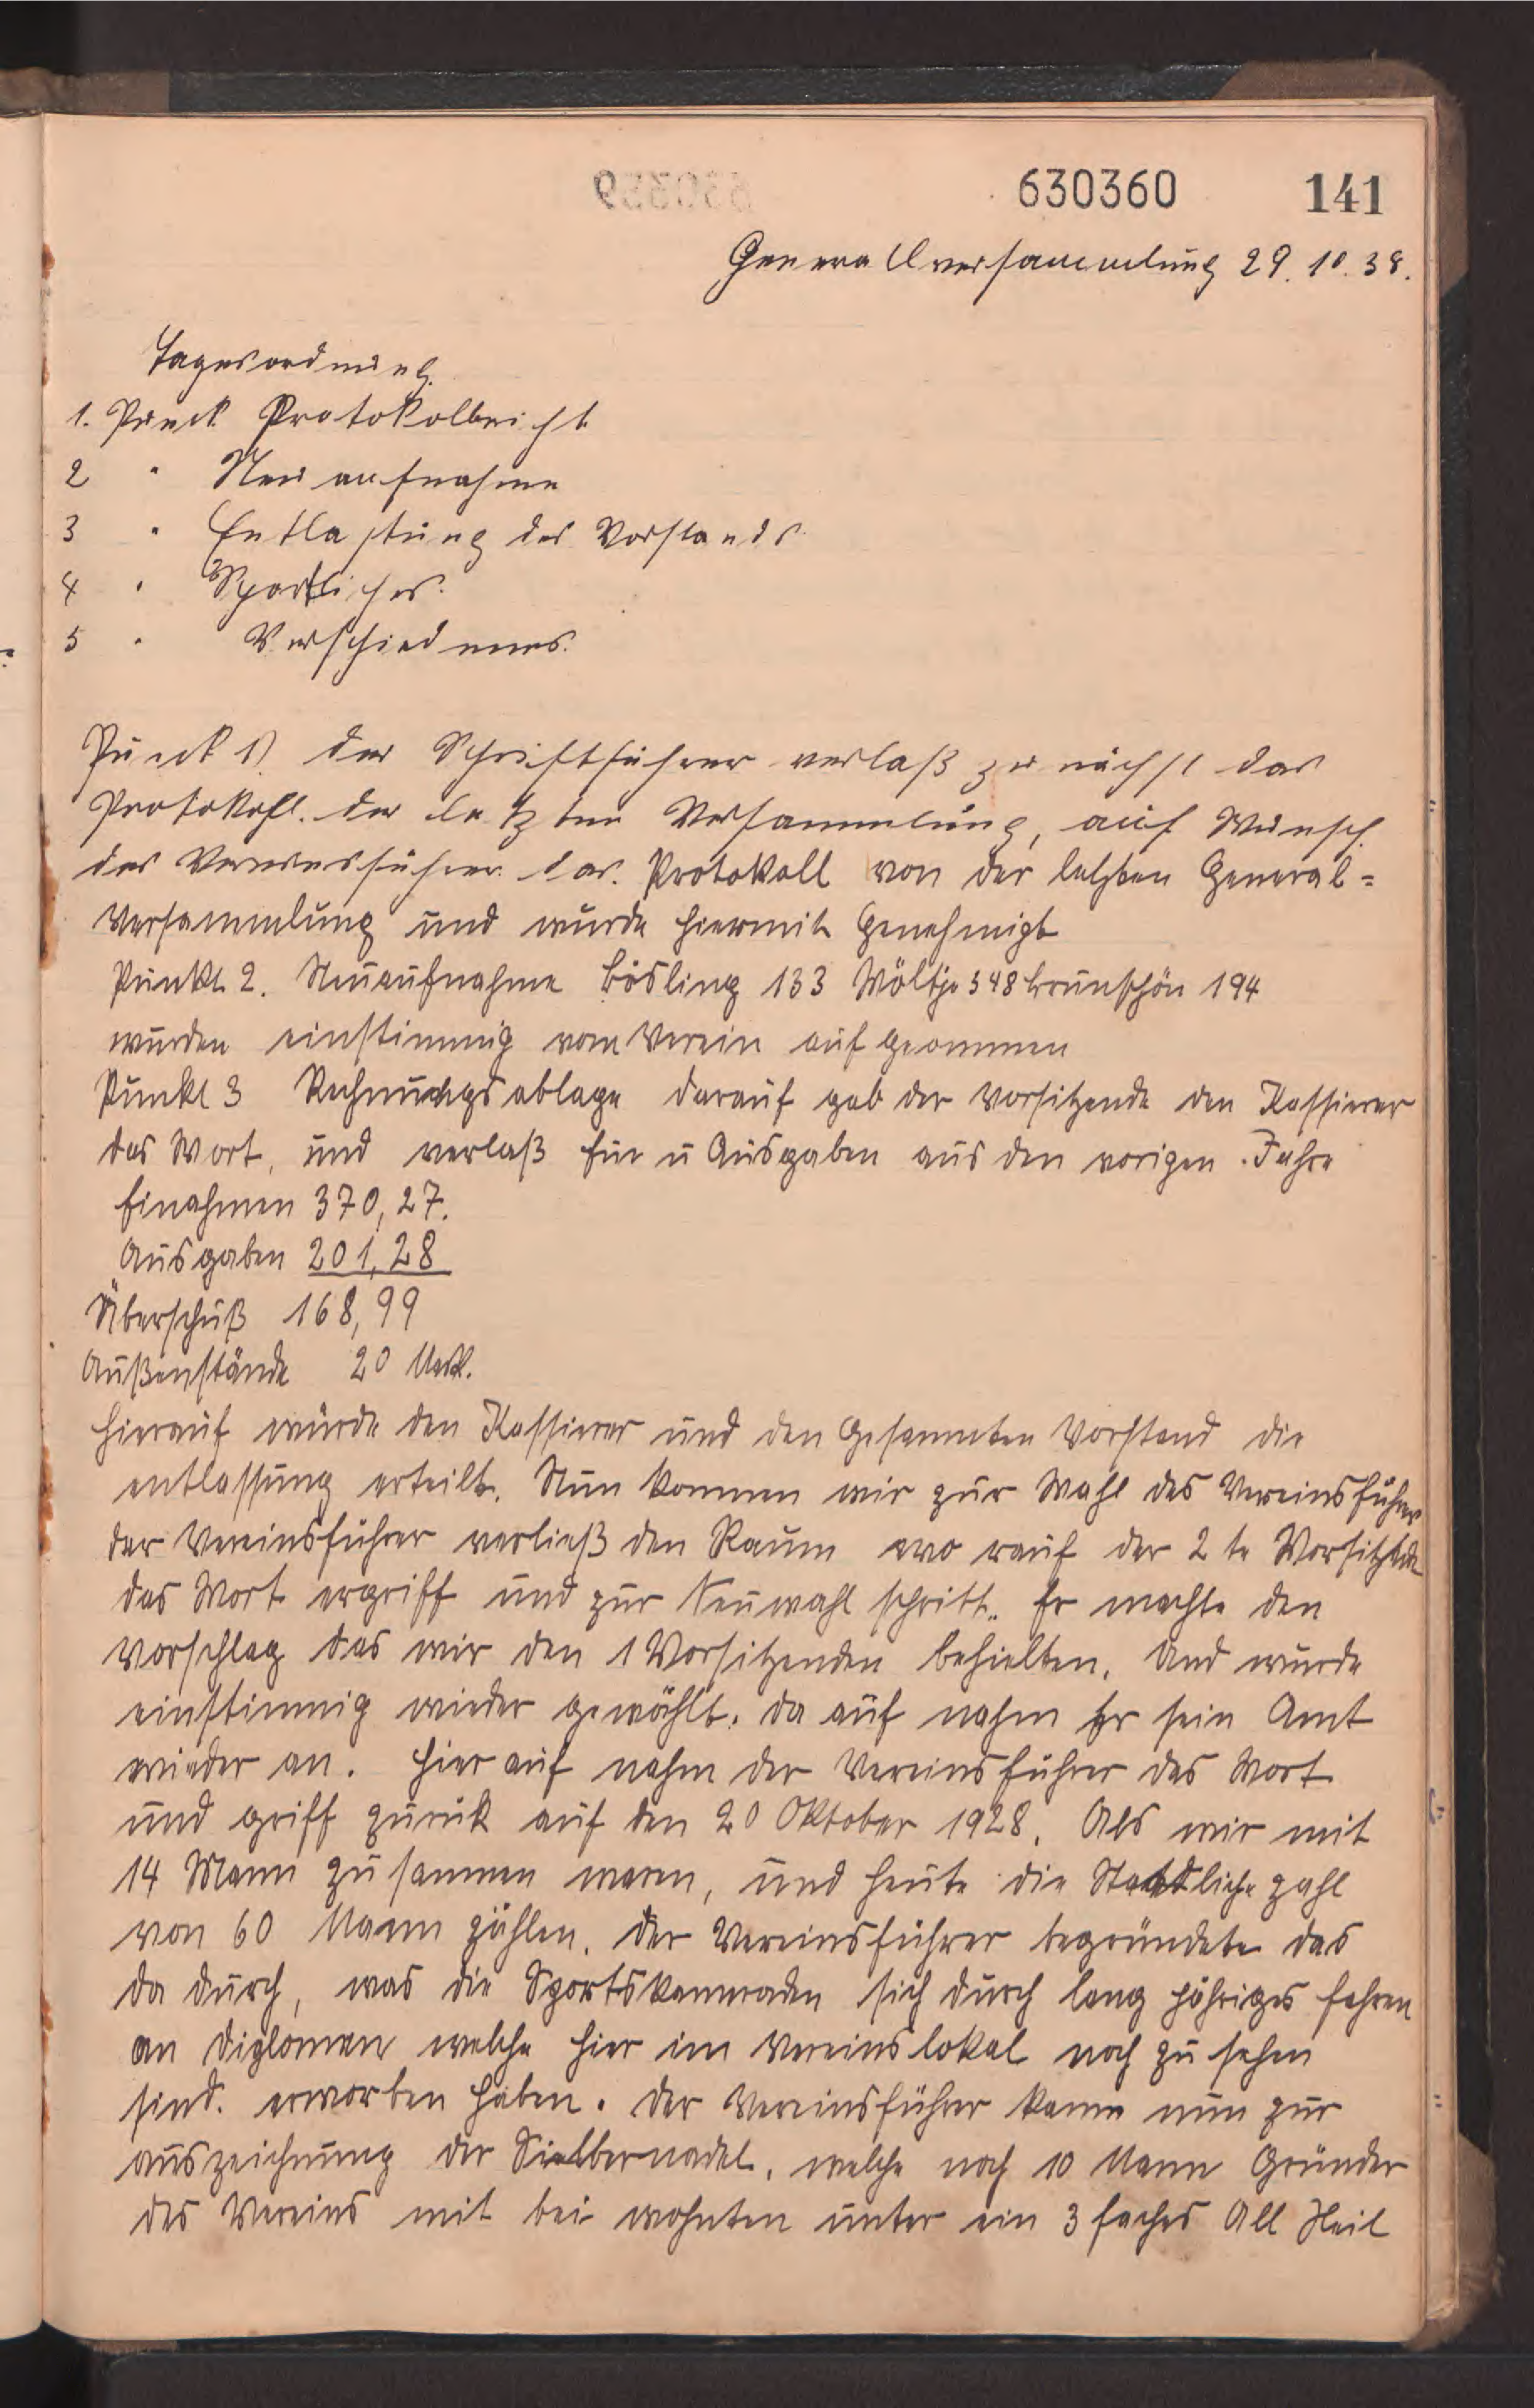 630359
630360 141
Generallversammlung 29.10.38.
Tagesordnung.
1. Punck Protokolbricht
2 " Neuaufnahme
3 " Entlastung des Vorstands
4 " Sportliches.
5 " Verschiedenes.
Punckt 1). der Schriftführer verlaß zunächst das
Protokohl. der letzten Versammlung, auf Wunsch
des Vereinsführer das. Protokoll von der letzten General=
Versammlung und wurde hiermit Genehmigt
Punkt 2. Neuaufnahme Bösling 133 Wöltje 548 Brunschön 194
wurden einstimmig vom Verein aufgeommen
Punkt 3 Rechnungsablage darauf gab der Vorsitzende den Kassierer
das Wort, und verlaß Ein u Ausgaben aus den vorigen Jahre
Einahmen 370,27.
Ausgaben 201,28
Überschuß 168,99
Außenstände 20 Mark.
Hierauf wurde den Kassierer und den Gesammten Vorstand die
entlassung erteilt. Nun kommen wir zur Wahl des Vereinsführer
der Vereinsführer verließ den Raum wo rauf der 2te Vorsitzende
das Wort ergriff und zur Neuwahl schritt. Er machte den
Vorschlag das wir den 1 Vorsitzenden behielten. Und wurde
einstimmig wieder gewählt. da auf nahm Er sein Amt
wieder an. Hier auf nahm der Vereinsführer das Wort
und griff zurük auf den 20 Oktober 1928. Als wir mit
14 Mann zusammen waren, und heute die Staatliche zahl
von 60 Mann zählen. der Vereinsführer begründete das
da durch, was die Sportskameraden sich durch lang jähriges fahren
an Diplomen welche hier im Vereinslokal noch zu sehen
sind. erworben haben. der Vereinsführer kamm nun zur
auszeichnung der Sielbernadel, welche noch 10 Mann Gründer
des Vereins mit bei wohnten unter ein 3 faches All Heil